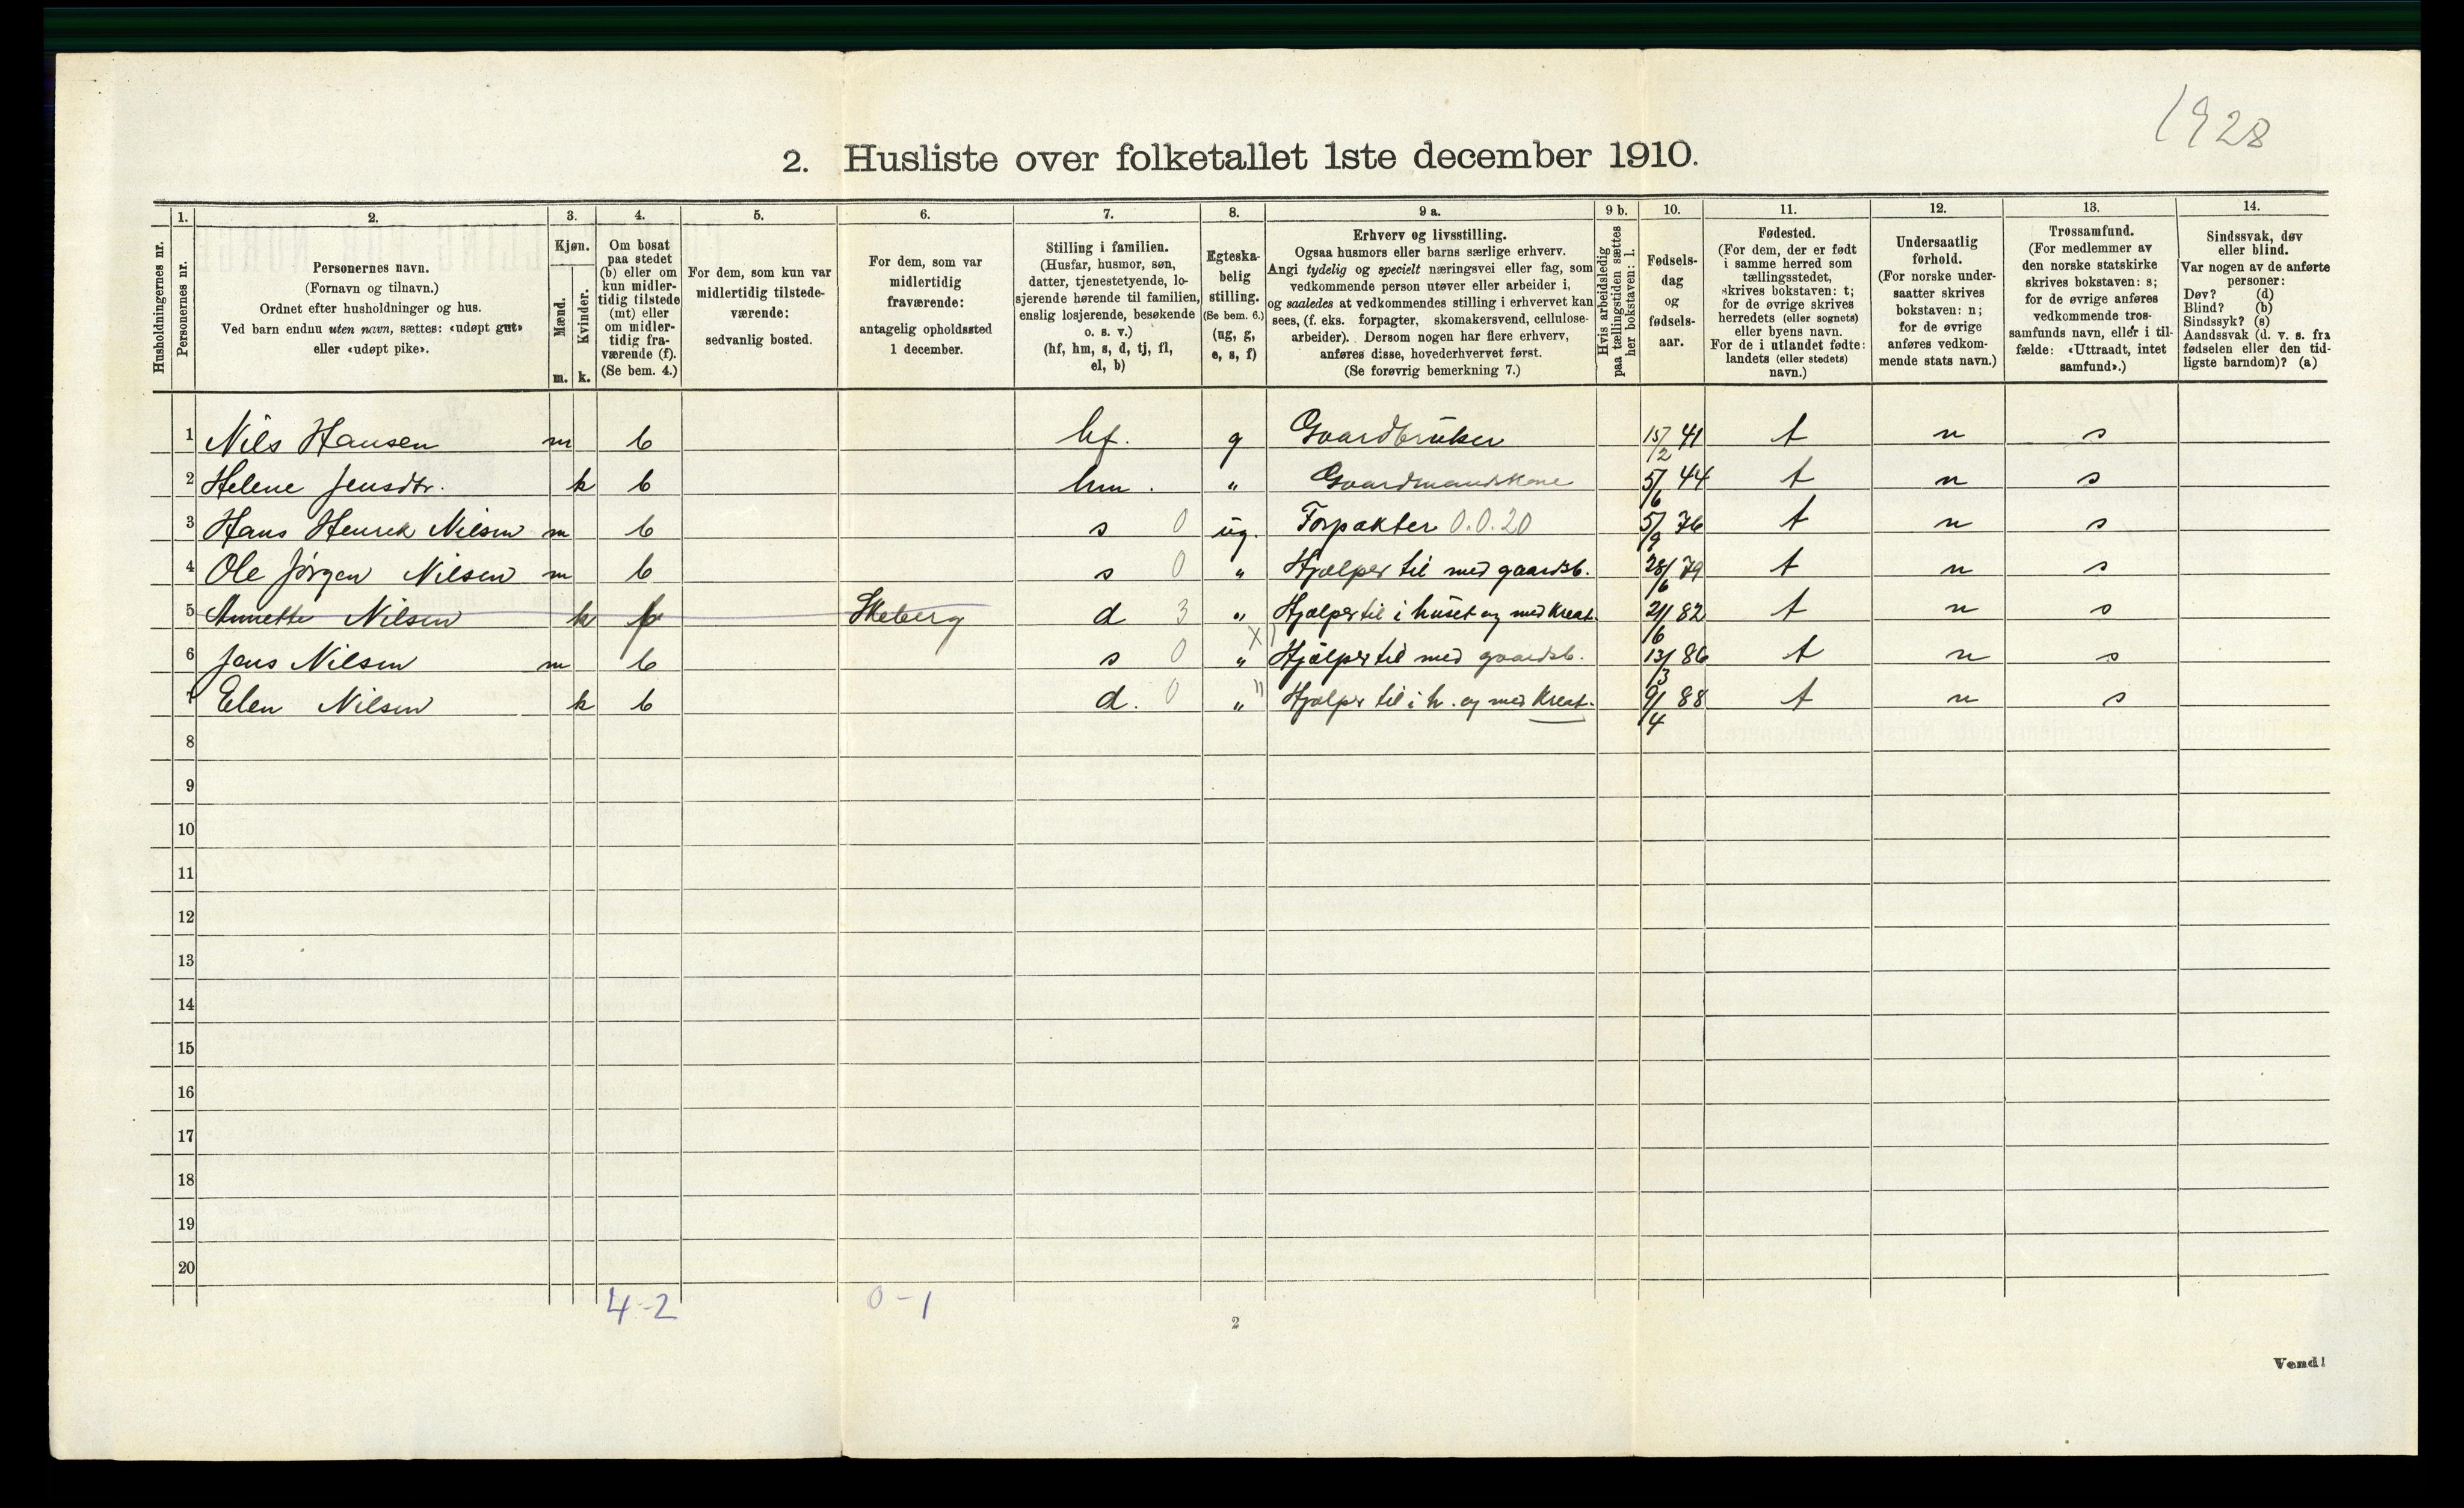 1928
2. Husliste over folketallet 1ste december 1910.
Husholdningernes nr.
1.
Personernes nr.
2.
Personernes navn.
(Fornavn og tilnavn.)
Ordnet efter husholdninger og hus.
Ved barn endnu uten navn, sættes: «udøpt gut»
eller «udøpt pike».
3.
Kjøn.
Mænd.
Kvinder.
m. k.
4.
Om bosat
paa stedet
(b) eller om
kun midler-
tidig tilstede
(mt) eller
om midler-
tidig fra-
værende (f).
(Se bem. 4.)
5.
For dem, som kun var
midlertidig tilstede-
værende:
sedvanlig bosted.
6.
For dem, som var
midlertidig
fraværende:
antagelig opholdssted
1 december.
7.
Stilling i familien.
(Husfar, husmor, søn,
datter, tjenestetyende, lo-
sjerende hørende til familien,
enslig losjerende, besøkende
o. s. v.)
(hf, hm, s, d, tj, fl,
el, b)
8.
Egteska-
belig
stilling.
(Se bem. 6.)
(ug, g,
e, s, f)
9 a.
Erhverv og livsstilling.
Ogsaa husmors eller barns særlige erhverv.
Angi tydelig og specielt næringsvei eller fag, som
vedkommende person utøver eller arbeider i,
og saaledes at vedkommendes stilling i erhvervet kan
sees, (f. eks. forpagter, skomakersvend, cellulose-
arbeider). Dersom nogen har flere erhverv,
anføres disse, hovederhvervet først.
(Se forøvrig bemerkning 7.)
9 b.
Hvis arbeidsledig
paa tællingstiden sættes
her bokstaven: l.
10.
Fødsels-
dag
og
fødsels-
aar.
11.
Fødested.
(For dem, der er født
i samme herred som
tællingsstedet,
skrives bokstaven: t;
for de øvrige skrives
herredets (eller sognets)
eller byens navn.
For de i utlandet fødte:
landets (eller stedets)
navn.)
12.
Undersaatlig
forhold.
(For norske under-
saatter skrives
bokstaven: n;
for de øvrige
anføres vedkom-
mende stats navn.)
13.
Trossamfund.
(For medlemmer av
den norske statskirke
skrives bokstaven: s;
for de øvrige anføres
vedkommende tros-
samfunds navn, eller i til-
fælde: «Uttraadt, intet
samfund».)
14.
Sindssvak, døv
eller blind.
Var nogen av de anførte
personer:
Døv? (d)
Blind? (b)
Sindssyk? (s)
Aandssvak (d. v. s. fra
fødselen eller den tid-
ligste barndom)? (a)
1 Nils Hansen m b hf. g Gaardbruker 15/2 41 t n s
2 Helene Jensdtr. k b hm. " Gaardmandskone 5/6 44 t n s
3 Hans Henrik Nilsen m b s 0 ug. Forpakter 0.0.20 5/9 76 t n s
4 Ole Jörgen Nilsen m b s 0 " Hjælper til med gaardsb. 28/6 79 t n s
5 Annette Nilsen k f Skeberg d 3 " Hjælper til i huset og med Kreat. 21/6 82 t n s
6 Jens Nilsen m b s 0 " x) Hjælper til med gaardsb. 13/3 86 t n s
7 Elen Nilsen k b d. 0 " " Hjælper til i h. og med Kreat. 9/4 88 t n s
8
9
10
11
12
13
14
15
16
17
18
19
20
4-2 0-1
2
Vend!